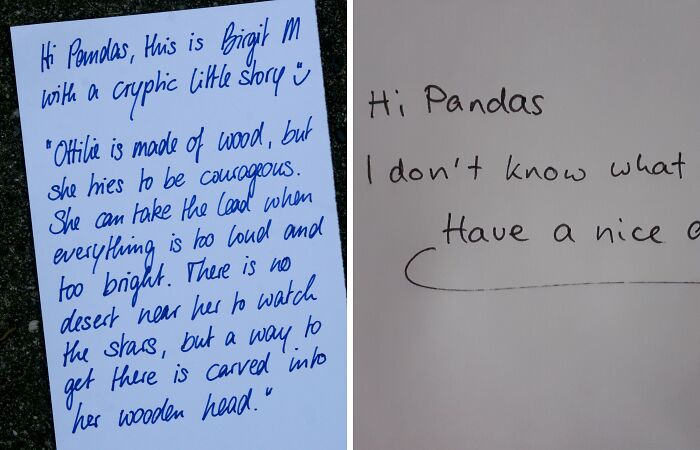 Hi Pandas, this is Birgit M
with a cryptic little story
"Ottilie is made of wood, but
she tries to be courageous.
She can take the lead when
everything is too loud and
too bright. There is no
desert near her to watch
the stars, but a way to
get there is carved into
her wooden head."
Hi Pandas
I don't know what
Have a nice